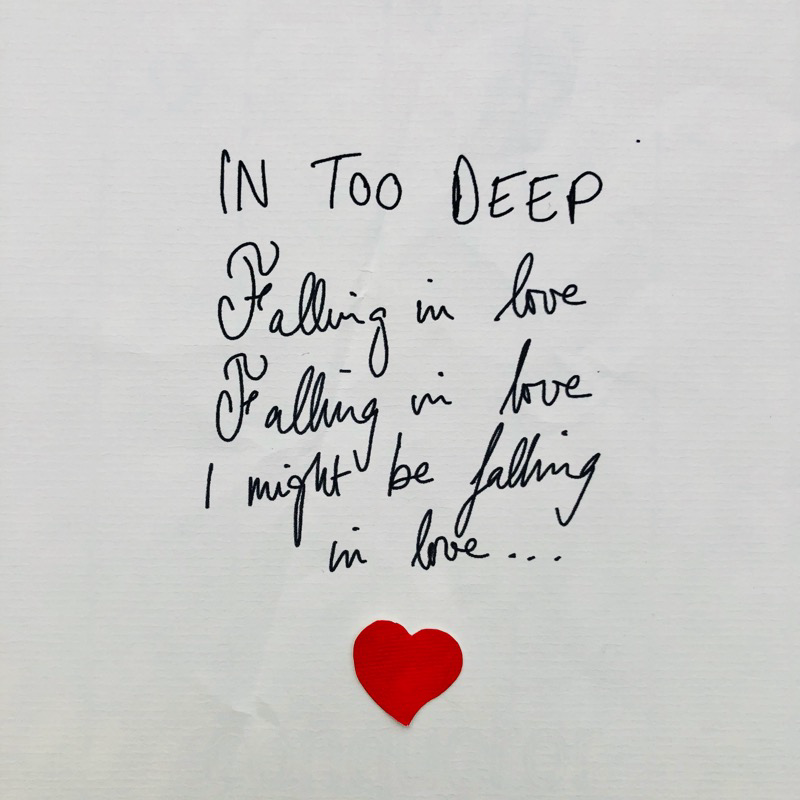 IN TOO DEEP
Falling in love
Falling in love
I might be falling
in love...